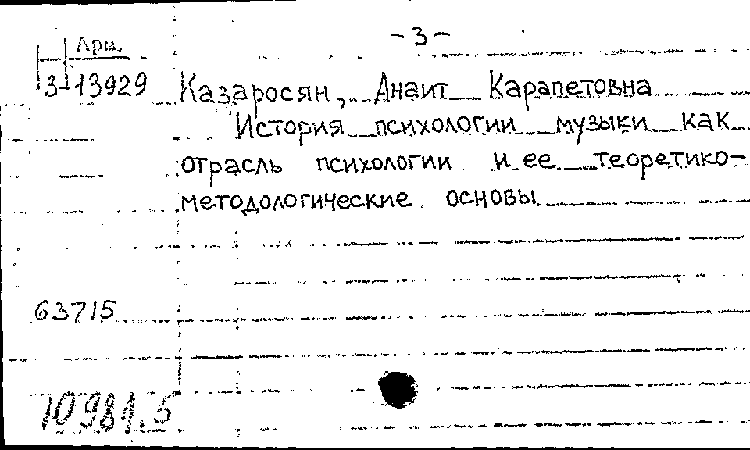 - 3 -
Арм.
3-13929
Казаросян, Анаит Карапетовна
История психологии музыки как
отрасль психологии и ее теоретико-
методологические основы
63715
10981.5